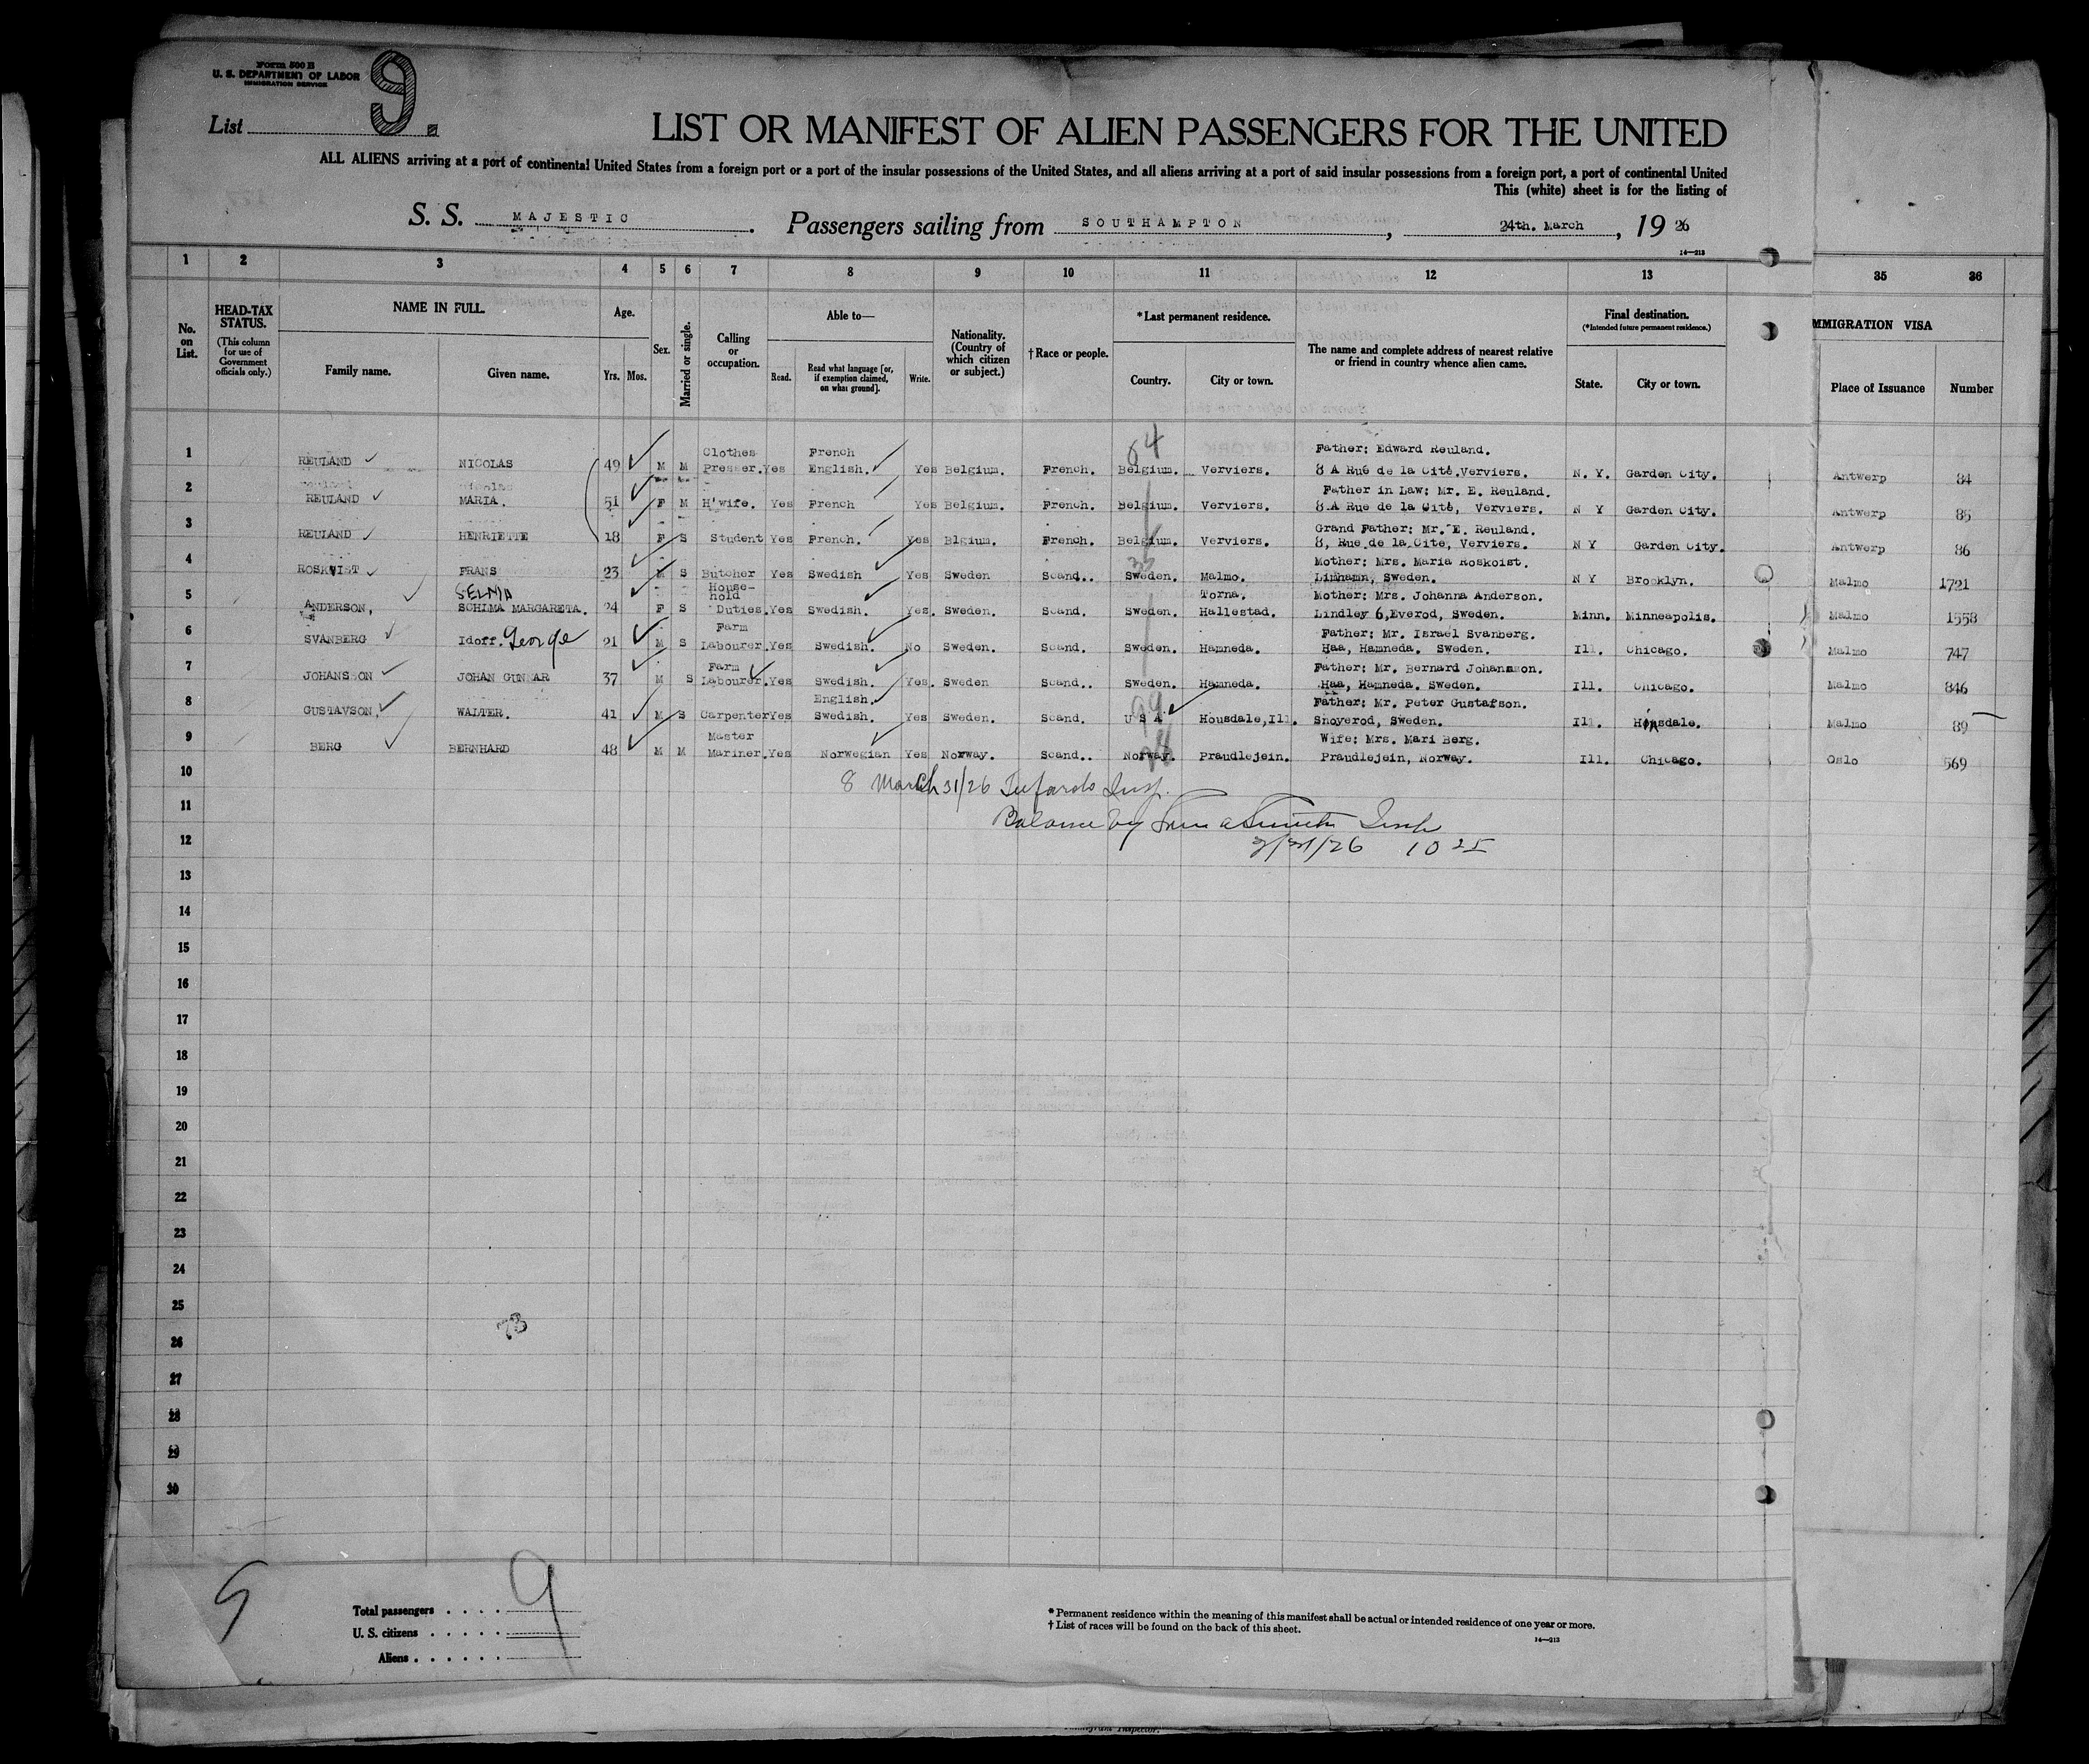 Form 500 B
U. S. DEPARTMENT OF LABOR
IMMIGRATION SERVICE
List 9.
LIST OR MANIFEST OF ALIEN PASSENGERS FOR THE UNITED
ALL ALIENS arriving at a port of continental United States from a foreign port or a port of the insular possessions of the United States, and all aliens arriving at a port of said insular possessions from a foreign port, a port of continental United
This (white) sheet is for the listing of
S. S. MAJESTIC. Passengers sailing from SOUTHAMPTON, 24th. March, 19 26
14—213
1 2 3 4 5 6 7 8 9 10 11 12 13 35 36
No. on List.
HEAD-TAX STATUS.
(This column for use of Government officials only.)
NAME IN FULL.
Family name. Given name.
Age.
Yrs. Mos.
Sex.
Married or single.
Calling or occupation.
Able to—
Read. Read what language [or, if exemption claimed, on what ground]. Write.
Nationality. (Country of which citizen or subject.)
† Race or people.
*Last permanent residence.
Country. City or town.
The name and complete address of nearest relative or friend in country whence alien came.
Final destination.
(*Intended future permanent residence.)
State. City or town.
MMIGRATION VISA
Place of Issuance Number
64
Clothes French Father: Edward Reuland.
1 REULAND NICOLAS 49 M M Presser. Yes English. Yes Belgium. French. Belgium. Verviers. 8 A Rue de la Cité, Verviers. N. Y. Garden City. Antwerp 84
Father in Law: Mr. E. Reuland.
2 REULAND MARIA. 51 F M H'wife. Yes French Yes Belgium. French. Belgium. Verviers. 8 A Rue de la Cité, Verviers. N Y Garden City. Antwerp 85
Grand Father: Mr. E. Reuland.
3 REULAND HENRIETTE 18 F S Student Yes French. Yes Blgium. French. Belgium. Verviers. 8, Rue de la Cite, Verviers. N Y Garden City. Antwerp 86
Mother: Mrs. Maria Roskoist.
4 ROSKVIST FRANS 23 M S Butcher Yes Swedish Yes Sweden Scand.. Sweden. Malmo. Limhamn, Sweden. N Y Brooklyn. Malmo 1721
SELMA House-hold Torna. Mother: Mrs. Johanna Anderson.
5 ANDERSON, SCHIMA MARGARETA. 24 F S Duties. Yes Swedish. Yes. Sweden. Scand. Sweden. Hallestad. Lindley 6, Everod, Sweden. Minn. Minneapolis. Malmo 1558
Farm Father: Mr. Israel Svanberg.
6 SVANBERG Idoff. George 21 M S Labourer. Yes Swedish. No Sweden. Scand. Sweden. Hamneda. Haa, Hamneda. Sweden. Ill. Chicago. Malmo 747
Farm Father: Mr. Bernard Johannson.
7 JOHANSSON JOHAN GUNNAR 37 M S Labourer. Yes Swedish. Yes. Sweden Scand.. Sweden. Hamneda. Haa, Hamneda. Sweden. Ill. Chicago. Malmo 846
English. 99 Father: Mr. Peter Gustafson.
8 GUSTAVSON, WALTER. 41 M S Carpenter Yes Swedish. Yes Sweden. Scand. U S A Housdale, Ill. Snoyerod, Sweden. Ill. Hinsdale. Malmo 89
Master Wife: Mrs. Mari Berg.
9 BERG BERNHARD 48 M M Mariner. Yes Norwegian Yes Norway. Scand.. Norway. Praudlejein. Praudlejein, Norway. Ill. Chicago. Oslo 569
10 8 March 31/26 Insp.
11 Balance by Insp
12 3/31/26 10 25
13
14
15
16
17
18
19
20
21
22
23
24
25
73
26
27
28
29
30
9
Total passengers . . . . 9
U. S. citizens . . . . .
Aliens . . . . . .
* Permanent residence within the meaning of this manifest shall be actual or intended residence of one year or more.
† List of races will be found on the back of this sheet.
14—213